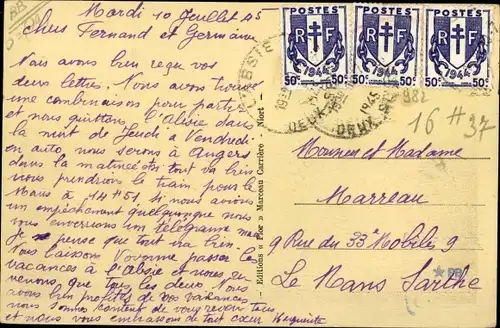 Mardi 10 Juillet 45
Chers Fernand et Germaine
Nous avons bien reçu vos
deux lettres. Nous avons trouvé
une combinaison pour partir
et nous quittons l'Absie dans
la nuit de Jeudi a Vendredi
en auto, nous serons à Angers
dans la matinée et si tout va bien
nous prendrons le train pour le
Mans à 14H51, si nous avions
un empêchement quelquonque nous
vous enverrions un télégramme mais
je pense que tout ira bien.
Nous laissons Yvonne passer les
vacances à l'Absie et nous re
venons que tous les deux. Nous
avons bien profités de vos vacances
nous sommes content de vous revoir tous
et nous vous embrassons de tout cœur Marguerite
Editions « Flor » Marceau Carrière - Niort
POSTES POSTES POSTES
RF RF RF
50c 1944 50c 50c 1944 50c 50c 1944 50c
1945
DEUX
982
16 H 37
Monsieur et Madame
Marreau
9 Rue du 33e Mobiles 9
Le Mans Sarthe